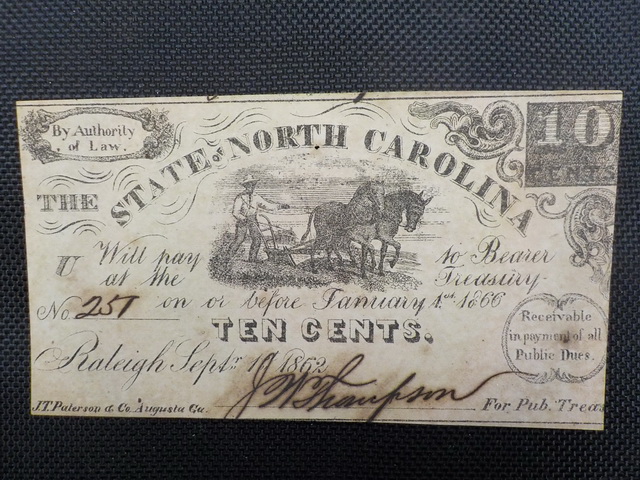 By Authority
of Law.
10
CENTS
THE STATE OF NORTH CAROLINA
U Will pay to Bearer
at the Treasury
No. 251 on or before January 1st 1866
TEN CENTS.
Receivable
in payment of all
Public Dues.
Raleigh Septr 1862
J W Thompson
J.T. Paterson & Co. Augusta Ga.
For Pub. Treas